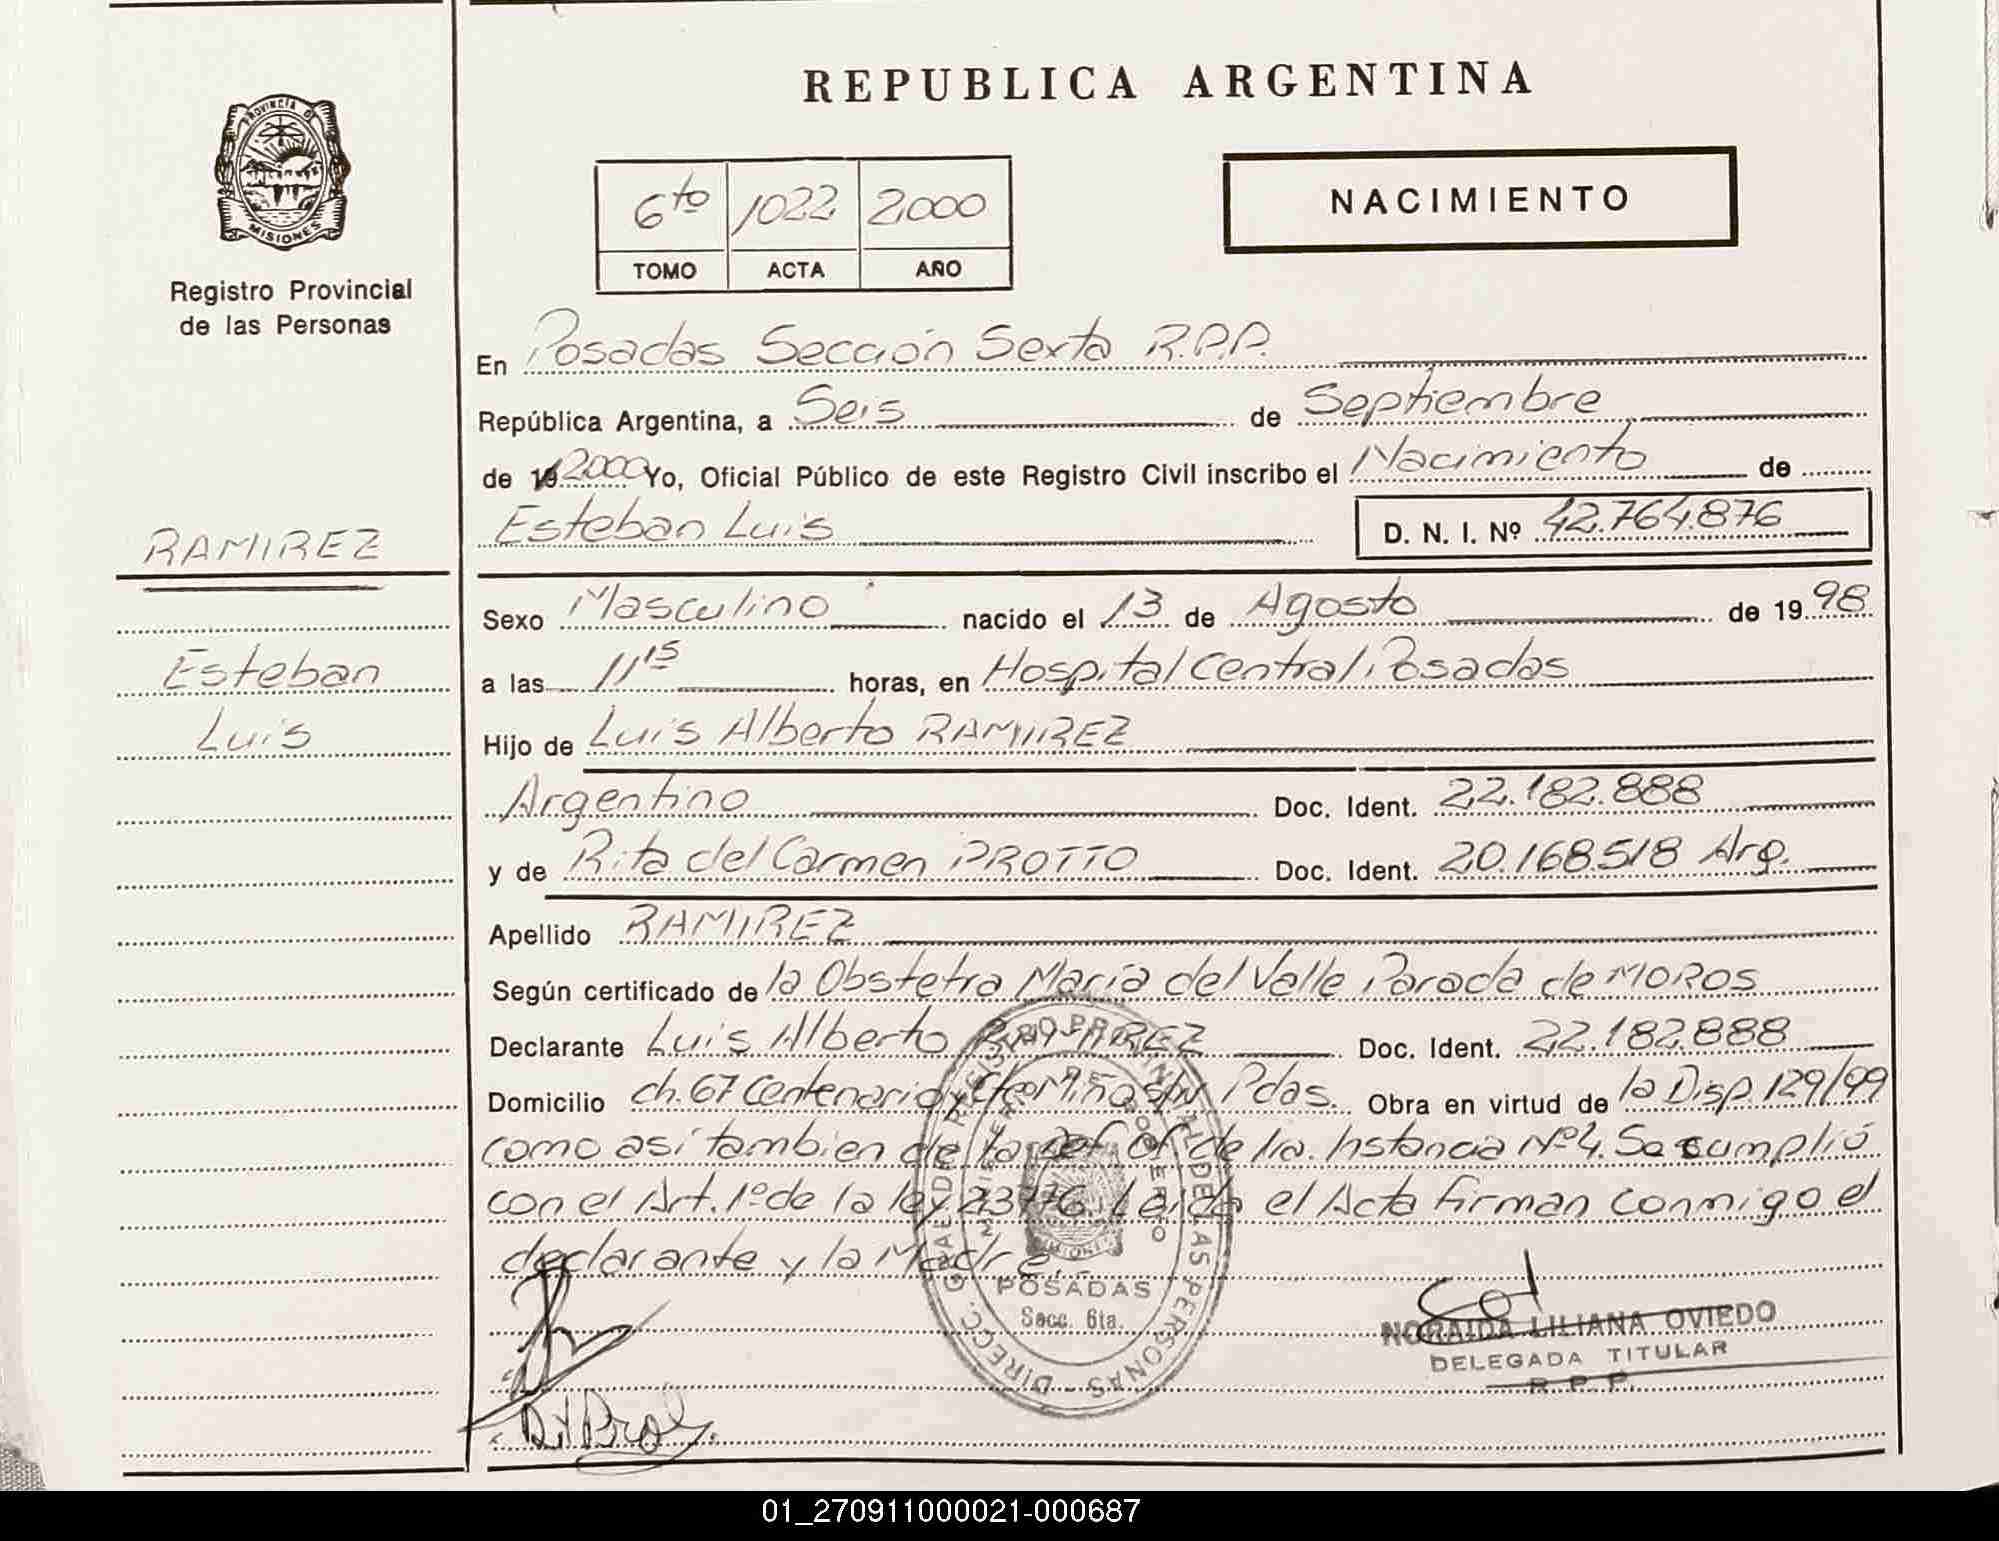 PROVINCIA DE
MISIONES
Registro Provincial
de las Personas
RAMIREZ
Esteban
Luis
REPUBLICA ARGENTINA
6to 1022 2000
TOMO ACTA AÑO
NACIMIENTO
En Posadas Sección Sexta R.P.P.
República Argentina, a Seis de Septiembre
de 19 2000 Yo, Oficial Público de este Registro Civil inscribo el Nacimiento de
Esteban Luis D. N. I. Nº 42.764.876
Sexo Masculino nacido el 13 de Agosto de 19 98
a las 11 15 horas, en Hospital Central Posadas
Hijo de Luis Alberto RAMIREZ
Argentino Doc. Ident. 22.182.888
y de Rita del Carmen PROTTO Doc. Ident. 20.168.518 Arg.
Apellido RAMIREZ
Según certificado de la Obstetra María del Valle Parada de MOROS
Declarante Luis Alberto RAMIREZ Doc. Ident. 22.182.888
Domicilio ch. 67 Centenario y Pdas. Obra en virtud de la Disp. 129/99
como asi tambien de la Def. Of. de 1ra. Instancia Nº 4. Se cumplió
con el Art. 1º de la ley 23776. Leida el Acta firman conmigo el
declarante y la Madre.
DIRECC. GRAL. DEL REGISTRO PROVINCIAL DE LAS PERSONAS
MISIONES
POSADAS
Secc. 6ta.
NORAIDA LILIANA OVIEDO
DELEGADA TITULAR
R. P. P.
01_270911000021-000687